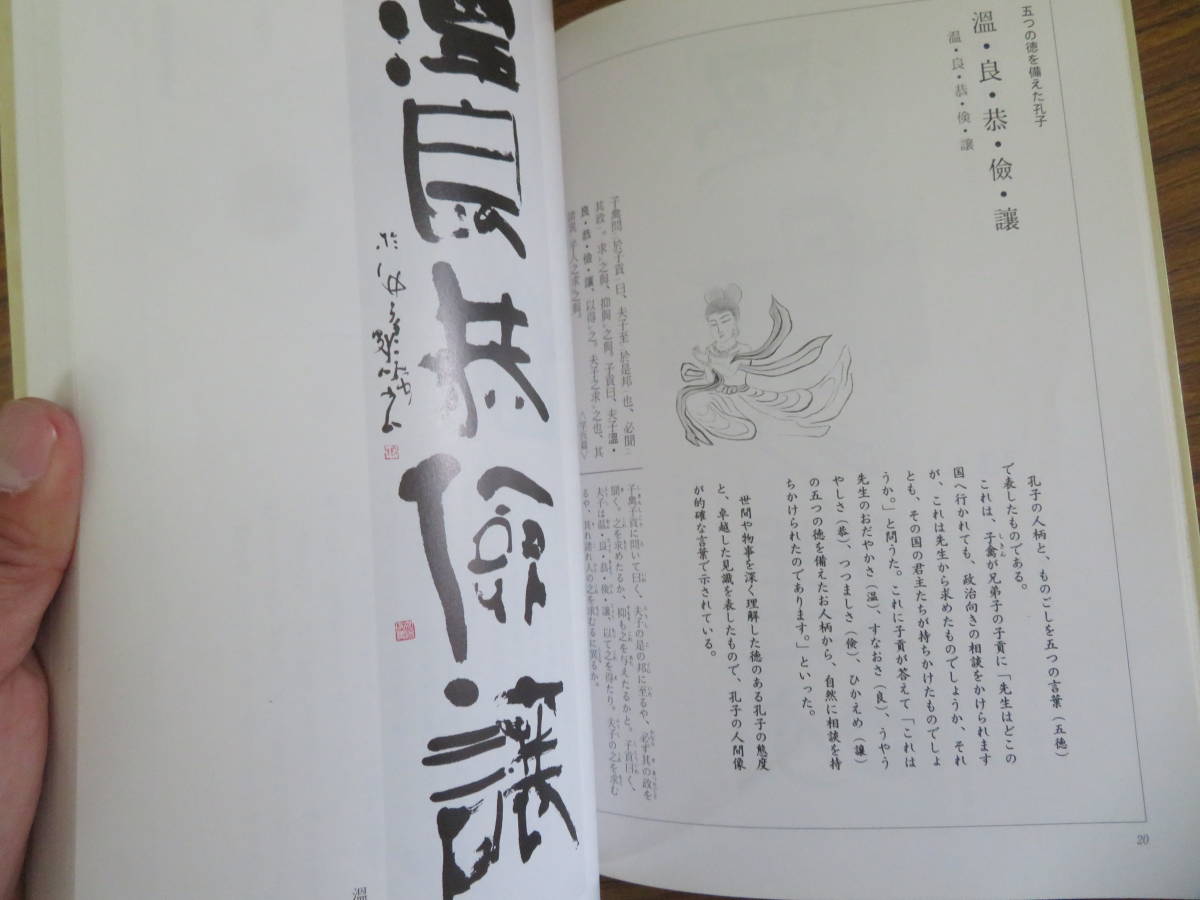 五つの徳を備えた孔子
溫・良・恭・儉・讓
温・良・恭・倹・譲
孔子の人柄と、ものごしを五つの言葉(五徳)
で表したものである。
これは、子禽が兄弟子の子貢に「先生はどこの
国へ行かれても、政治向きの相談をかけられます
が、これは先生から求めたものでしょうか、それ
とも、その国の君主たちが持ちかけたものでしょ
うか。」と問うた。これに子貢が答えて「これは
先生のおだやかさ(温)、すなおさ(良)、うやう
やしさ(恭)、つつましさ(倹)、ひかえめ(譲)
の五つの徳を備えたお人柄から、自然に相談を持
ちかけられたのであります。」といった。
世間や物事を深く理解した徳のある孔子の態度
と、卓越した見識を表したもので、孔子の人間像
が的確な言葉で示されている。
子禽問於子貢曰、夫子至於是邦也、必聞
其政。求之與、抑與之與。子貢曰、夫子溫・
良・恭・儉・讓、以得之。夫子之求之也、其
人之求之與。
子禽子貢に問いて曰く、夫子の是の邦に至るや、必ず其の政を
聞く。之を求めたるか、抑も之を与えたるかと。子貢曰く、
夫子は温・良・恭・倹・譲、以て之を得たり。夫子の之を求む
るや、其れ諸れ人の之を求むるに異るか。
20
溫良恭儉讓
溫